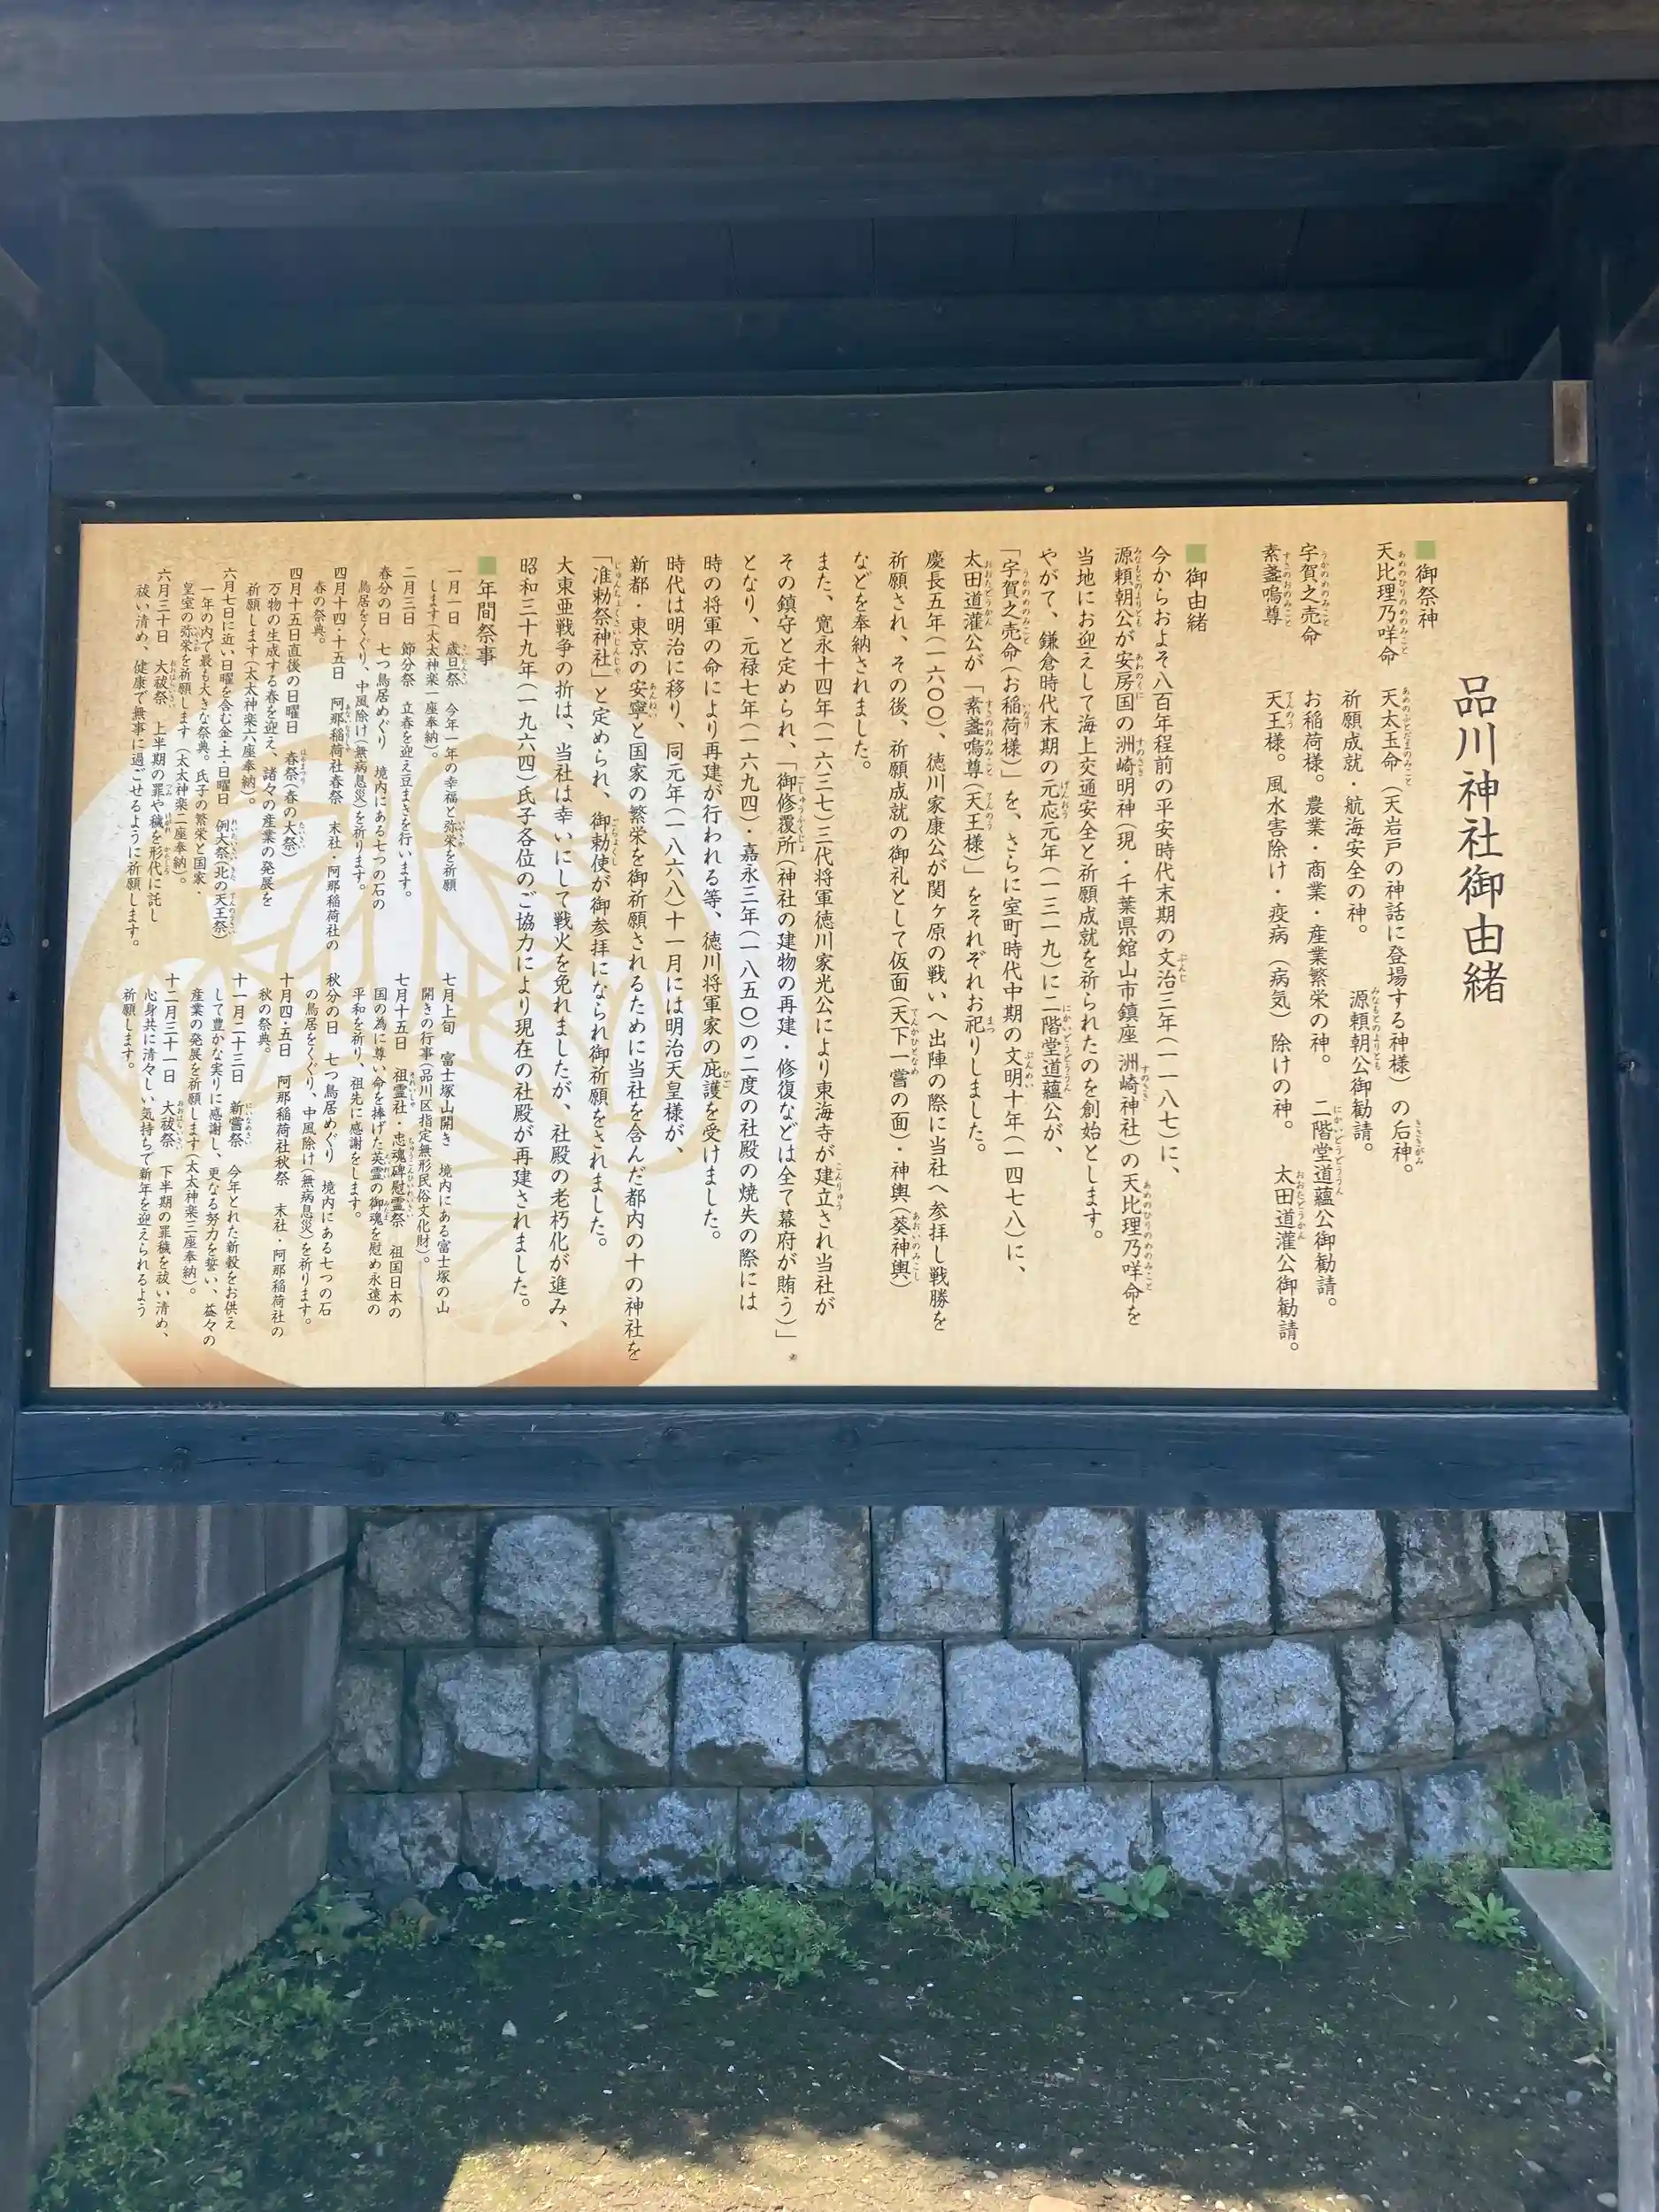 品川神社御由緒
■御祭神
天比理乃咩命　天太玉命（天岩戸の神話に登場する神様）の后神。
祈願成就・航海安全の神。　源頼朝公御勧請。
宇賀之売命　お稲荷様。農業・商業・産業繁栄の神。　二階堂道蘊公御勧請。
素盞嗚尊　天王様。風水害除け・疫病（病気）除けの神。　太田道灌公御勧請。
■御由緒
今からおよそ八百年程前の平安時代末期の文治三年（一一八七）に、
源頼朝公が安房国の洲崎明神（現・千葉県館山市鎮座 洲崎神社）の天比理乃咩命を
当地にお迎えして海上交通安全と祈願成就を祈られたのを創始とします。
やがて、鎌倉時代末期の元応元年（一三一九）に二階堂道蘊公が、
「宇賀之売命（お稲荷様）」を、さらに室町時代中期の文明十年（一四七八）に、
太田道灌公が「素盞嗚尊（天王様）」をそれぞれお祀りしました。
慶長五年（一六〇〇）、徳川家康公が関ヶ原の戦いへ出陣の際に当社へ参拝し戦勝を
祈願され、その後、祈願成就の御礼として仮面（天下一嘗の面）・神輿（葵神輿）
などを奉納されました。
また、寛永十四年（一六三七）三代将軍徳川家光公により東海寺が建立され当社が
その鎮守と定められ、「御修覆所（神社の建物の再建・修復などは全て幕府が賄う）」
となり、元禄七年（一六九四）・嘉永三年（一八五〇）の二度の社殿の焼失の際には
時の将軍の命により再建が行われる等、徳川将軍家の庇護を受けました。
時代は明治に移り、同元年（一八六八）十一月には明治天皇様が、
新都・東京の安寧と国家の繁栄を御祈願されるために当社を含んだ都内の十の神社を
「准勅祭神社」と定められ、御勅使が御参拝になられ御祈願をされました。
大東亜戦争の折は、当社は幸いにして戦火を免れましたが、社殿の老朽化が進み、
昭和三十九年（一九六四）氏子各位のご協力により現在の社殿が再建されました。
■年間祭事
一月一日　歳旦祭　今年一年の幸福と弥栄を祈願
します（太太神楽一座奉納）。
二月三日　節分祭　立春を迎え豆まきを行います。
春分の日　七つ鳥居めぐり　境内にある七つの石の
鳥居をくぐり、中風除け（無病息災）を祈ります。
四月十四・十五日　阿那稲荷社春祭　末社・阿那稲荷社の
春の祭典。
四月十五日直後の日曜日　春祭（春の大祭）
万物の生成する春を迎え、諸々の産業の発展を
祈願します（太太神楽六座奉納）。
六月七日に近い日曜を含む金・土・日曜日　例大祭（北の天王祭）
一年の内で最も大きな祭典。氏子の繁栄と国家・
皇室の弥栄を祈願します（太太神楽二座奉納）。
六月三十日　大祓祭　上半期の罪や穢を形代に託し
祓い清め、健康で無事に過ごせるように祈願します。
七月上旬　富士塚山開き　境内にある富士塚の山
開きの行事（品川区指定無形民俗文化財）。
七月十五日　祖霊社・忠魂碑慰霊祭　祖国日本の
国の為に尊い命を捧げた英霊の御魂を慰め永遠の
平和を祈り、祖先に感謝をします。
秋分の日　七つ鳥居めぐり　境内にある七つの石
の鳥居をくぐり、中風除け（無病息災）を祈ります。
十月四・五日　阿那稲荷社秋祭　末社・阿那稲荷社の
秋の祭典。
十一月二十三日　新嘗祭　今年とれた新穀をお供え
して豊かな実りに感謝し、更なる努力を誓い、益々の
産業の発展を祈願します（太太神楽三座奉納）。
十二月三十一日　大祓祭　下半期の罪穢を祓い清め、
心身共に清々しい気持ちで新年を迎えられるよう
祈願します。